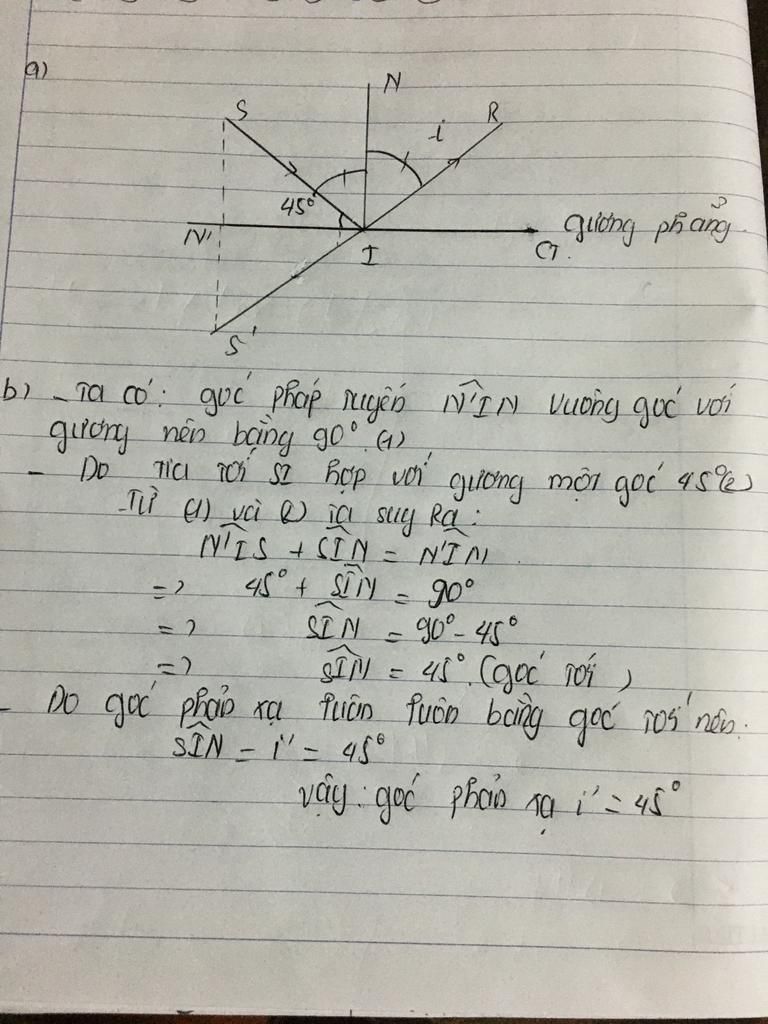 a)
N
S
R
i
45°
N'
I
G
gương phẳng.
S'
b) - Ta có: góc pháp tuyến N'IN vuông góc với
gương nên bằng 90° (1)
- Do tia tới SI hợp với gương một góc 45° (2)
- Từ (1) và (2) ta suy Ra:
N'IS + SIN = N'IN
=> 45° + SIN = 90°
=> SIN = 90° - 45°
=> SIN = 45°. (góc tới)
- Do góc phản xạ luôn luôn bằng góc tới nên:
SIN = i' = 45°
Vậy: góc phản xạ i' = 45°